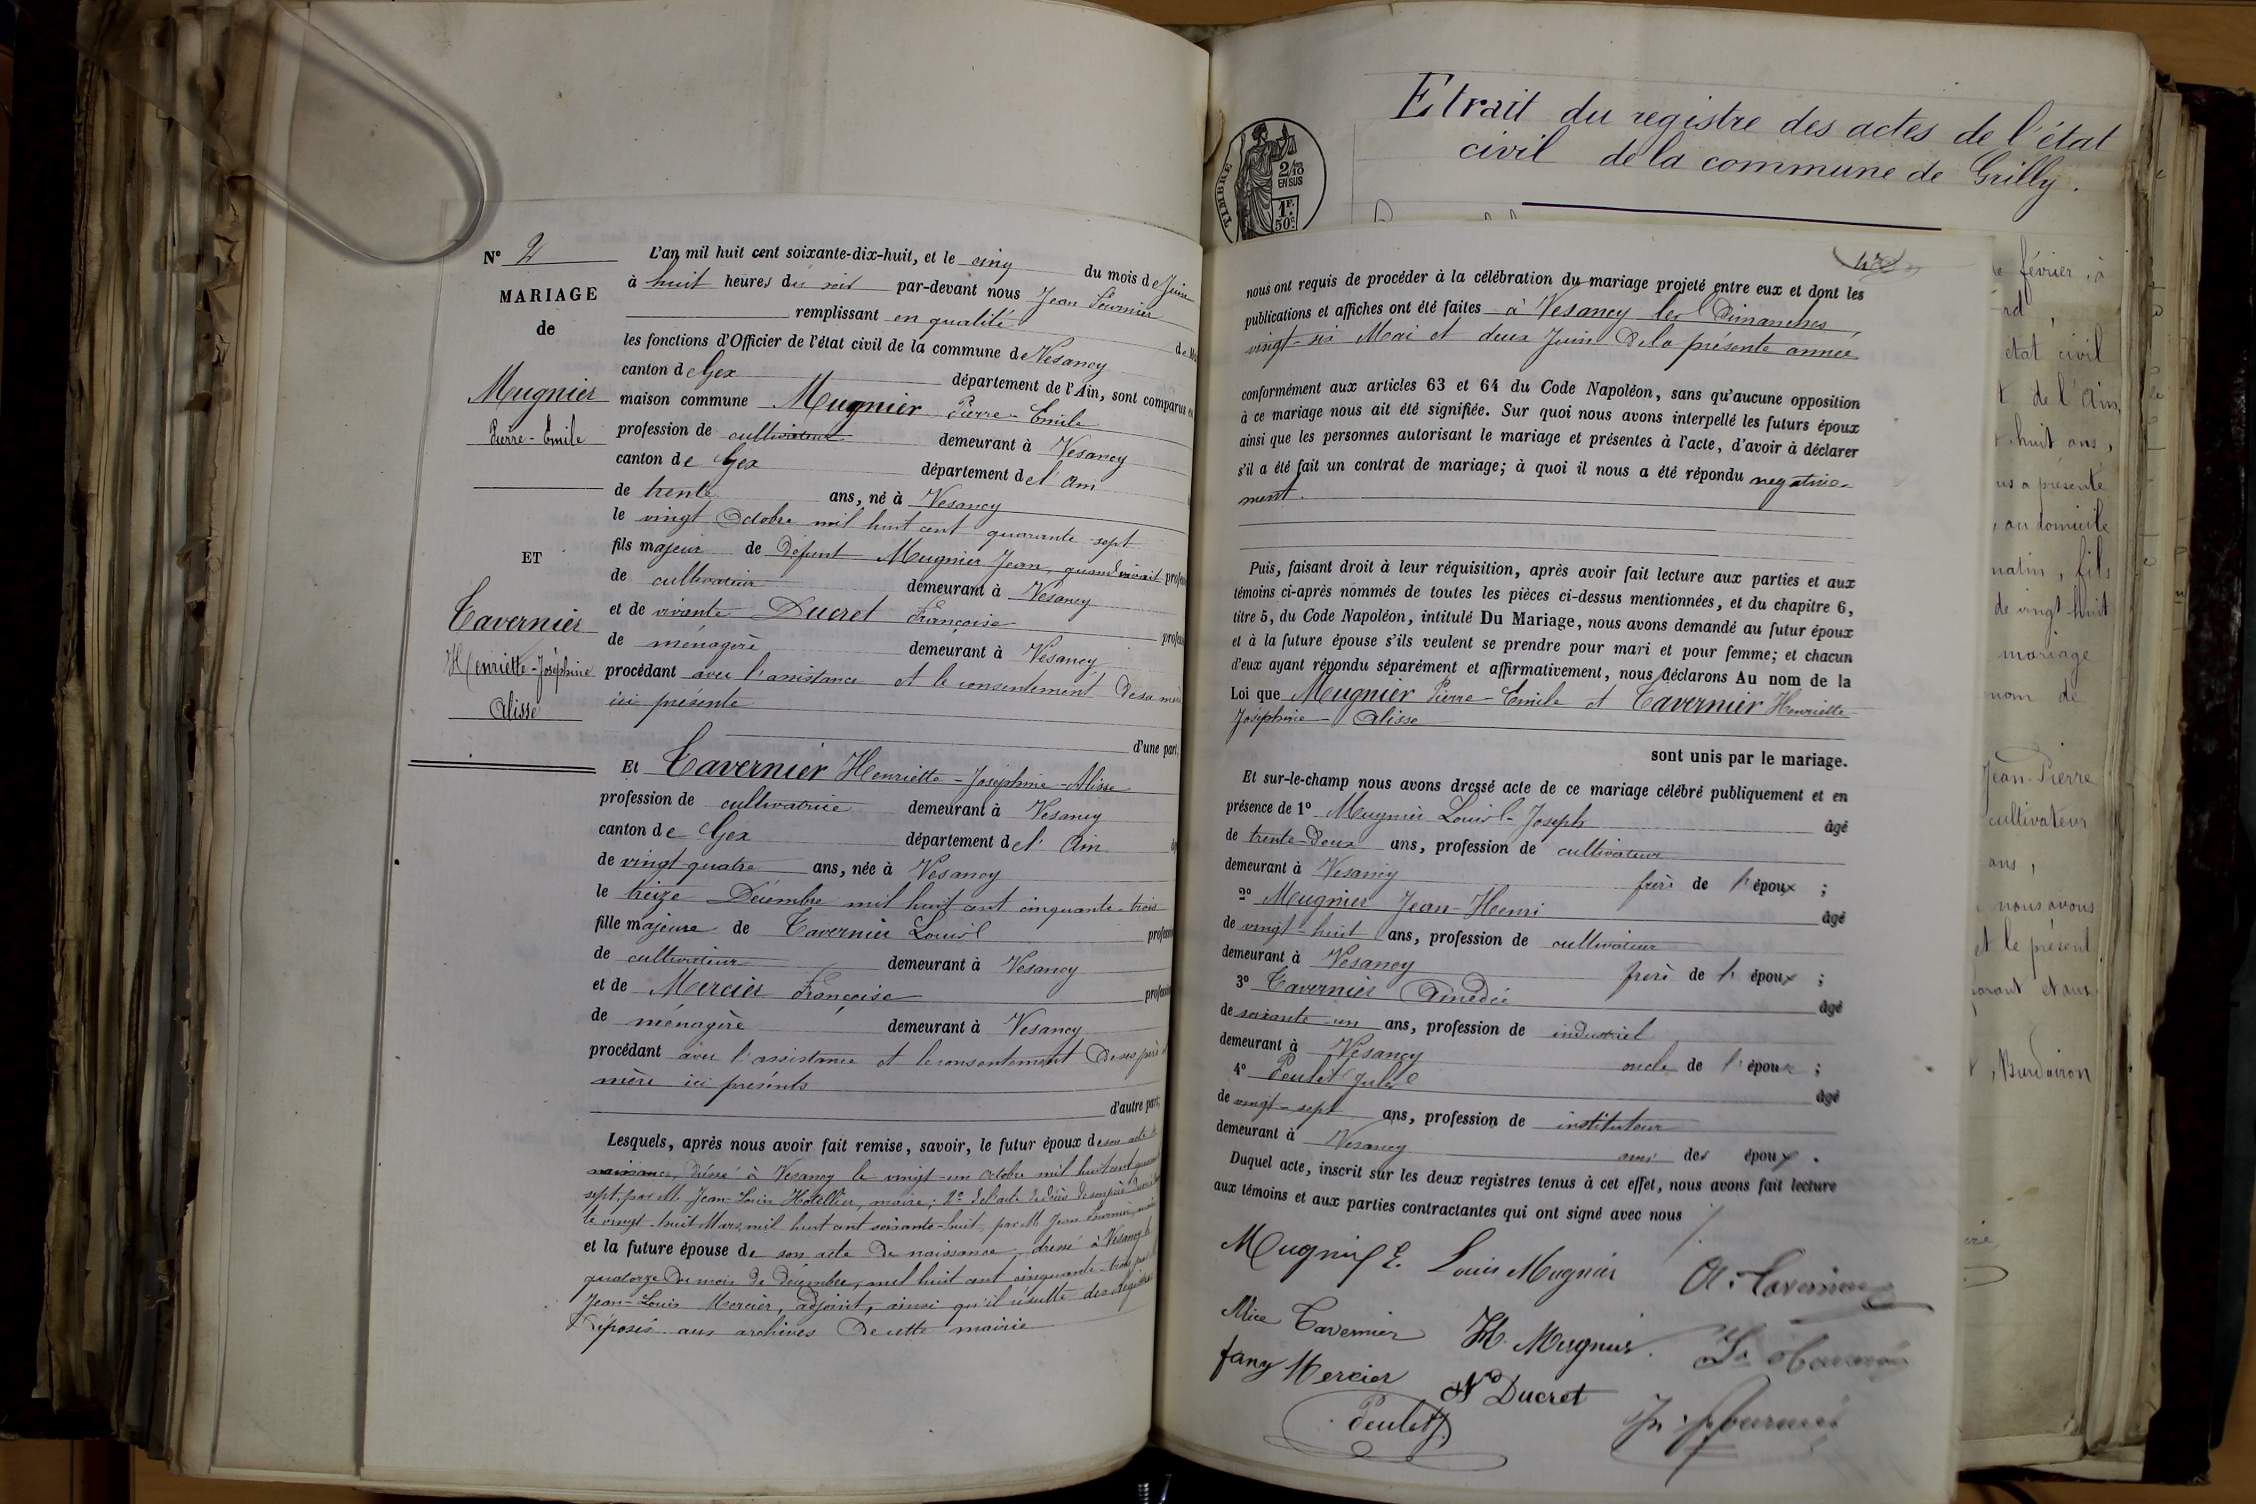 N° 2
MARIAGE
de
Mugnier
Pierre-Emile
ET
Tavernier
Henriette-Joséphine
Alisse
L'an mil huit cent soixante-dix-huit, et le cinq du mois de Juin
à huit heures du soir par-devant nous Jean Fournier
remplissant en qualité de
les fonctions d'Officier de l'état civil de la commune de Vesancy
canton de Gex département de l'Ain, sont comparus
maison commune Mugnier Pierre-Emile
profession de cultivateur demeurant à Vesancy
canton de Gex département de l'Ain
de trente ans, né à Vesancy
le vingt Octobre mil huit cent quarante-sept
fils majeur de Défunt Mugnier Jean, quand vivait
de cultivateur demeurant à Vesancy
et de vivante Ducret Françoise
de ménagère demeurant à Vesancy
procédant avec l'assistance et le consentement de sa mère
ici présente
d'une part,
Et Tavernier Henriette-Joséphine-Alisse
profession de cultivatrice demeurant à Vesancy
canton de Gex département de l'Ain
de vingt-quatre ans, née à Vesancy
le treize Décembre mil huit cent cinquante-trois
fille majeure de Tavernier Louis
de cultivateur demeurant à Vesancy
et de Mercier Françoise
de ménagère demeurant à Vesancy
procédant avec l'assistance et le consentement de ses père
mère ici présents
d'autre part,
Lesquels, après nous avoir fait remise, savoir, le futur époux de son acte de
naissance, dressé à Vesancy le vingt-un Octobre mil huit cent
sept, par M. Jean-Louis Hotellier, maire; 2° de l'acte de décès de son père
le vingt-huit Mars mil huit cent soixante-huit, par M. Jean Fournier
et la future épouse de son acte de naissance, dressé à Vesancy le
quatorze du mois de Décembre, mil huit cent cinquante-trois par
Jean-Louis Mercier, adjoint, ainsi qu'il résulte des Registres
déposés aux archives de cette mairie
Etrait du registre des actes de l'état
civil de la commune de Grilly.
TIMBRE
2/10
EN SUS
1F.
50c.
nous ont requis de procéder à la célébration du mariage projeté entre eux et dont les
publications et affiches ont été faites à Vesancy les Dimanches
vingt-six Mai et deux Juin de la présente année
conformément aux articles 63 et 64 du Code Napoléon, sans qu'aucune opposition
à ce mariage nous ait été signifiée. Sur quoi nous avons interpellé les futurs époux
ainsi que les personnes autorisant le mariage et présentes à l'acte, d'avoir à déclarer
s'il a été fait un contrat de mariage; à quoi il nous a été répondu negative-
ment.
Puis, faisant droit à leur réquisition, après avoir fait lecture aux parties et aux
témoins ci-après nommés de toutes les pièces ci-dessus mentionnées, et du chapitre 6,
titre 5, du Code Napoléon, intitulé Du Mariage, nous avons demandé au futur époux
et à la future épouse s'ils veulent se prendre pour mari et pour femme; et chacun
d'eux ayant répondu séparément et affirmativement, nous déclarons Au nom de la
Loi que Mugnier Pierre-Emile et Tavernier Henriette
Joséphine-Alisse
sont unis par le mariage.
Et sur-le-champ nous avons dressé acte de ce mariage célébré publiquement et en
présence de 1° Mugnier Louis-Joseph âgé
de trente-deux ans, profession de cultivateur
demeurant à Vesancy frère de l'époux ;
2° Mugnier Jean-Henri âgé
de vingt-huit ans, profession de cultivateur
demeurant à Vesancy frère de l'époux ;
3° Tavernier Amédée âgé
de soixante-un ans, profession de industriel
demeurant à Vesancy oncle de l'époux ;
4° Peulet Jules âgé
de vingt-sept ans, profession de instituteur
demeurant à Vesancy ami des époux .
Duquel acte, inscrit sur les deux registres tenus à cet effet, nous avons fait lecture
aux témoins et aux parties contractantes qui ont signé avec nous
Mugnier E. Louis Mugnier A. Tavernier
Alice Tavernier H. Mugnier
fany Mercier Ducret
Peulet Fournier
février, à
état civil
de l'Ain,
huit ans,
a présenté
au domicile
matin, fils
de vingt huit
mariage
nom de
Jean-Pierre
cultivateur
ans,
nous avons
et le présent
et aux
Burdairon